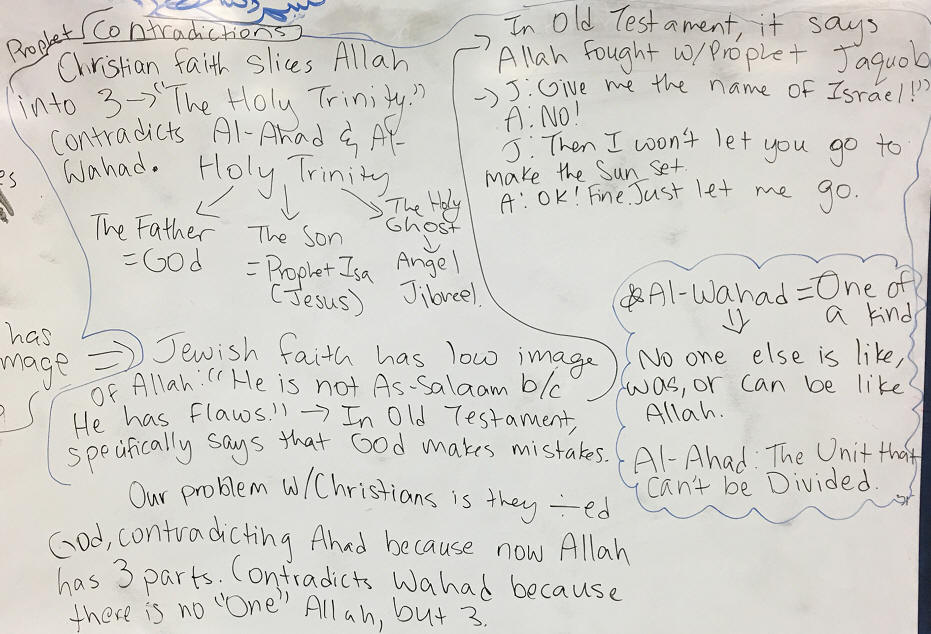 Prophet Contradictions
Christian faith slices Allah
into 3 → "The Holy Trinity."
Contradicts Al-Ahad & Al-
Wahad.
Holy Trinity
The Father
= God
The Son
= Prophet Isa
(Jesus)
The Holy
Ghost
Angel
Jibreel.
has
mage
Jewish faith has low image
of Allah: "He is not As-Salaam b/c
He has flaws." → In Old Testament,
specifically says that God makes mistakes.
Our problem w/Christians is they ÷ed
God, contradicting Ahad because now Allah
has 3 parts. Contradicts Wahad because
there is no "One" Allah, but 3.
→ In Old Testament, it says
Allah fought w/Prophet Jaquob
→ J: Give me the name of Israel!"
A: No!
J: Then I won't let you go to
make the Sun set.
A: OK! Fine. Just let me go.
Al-Wahad = One of
a kind
No one else is like,
was, or can be like
Allah.
Al-Ahad: The Unit that
Can't be Divided.